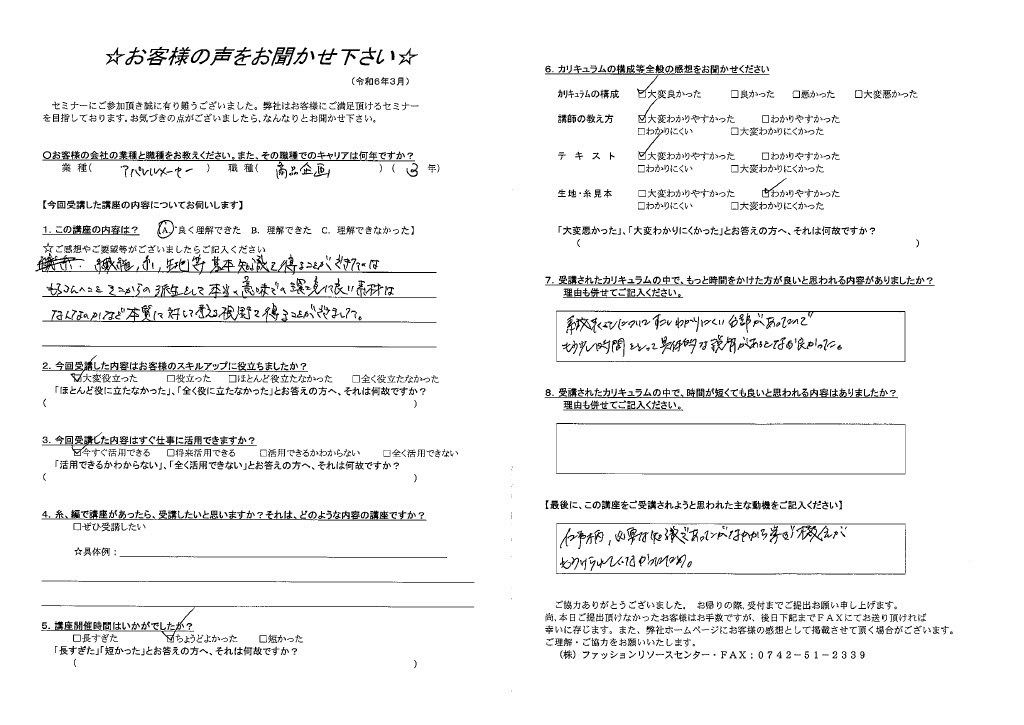 ☆お客様の声をお聞かせ下さい☆
(令和6年3月)
セミナーにご参加頂き誠に有り難うございました。弊社はお客様にご満足頂けるセミナー
を目指しております。お気づきの点がございましたら、なんなりとお聞かせ下さい。
〇お客様の会社の業種と職種をお教えください。また、その職種でのキャリアは何年ですか?
業 種( アパレルメーカー ) 職 種( 商品企画 ) ( 3 年)
【今回受講した講座の内容についてお伺いします】
1. この講座の内容は? 【A. 良く理解できた B. 理解できた C. 理解できなかった】
☆ご感想やご要望等がございましたらご記入ください
繊維, 糸, 生地等 基本知識を得ることができたのは
もちろんのこと そこからの派生として本当の意味での環境に良い素材は
なんなのかなど本質に対して考える視野を得ることができました。
2. 今回受講した内容はお客様のスキルアップに役立ちましたか?
☑大変役立った □役立った □ほとんど役立たなかった □全く役立たなかった
「ほとんど役に立たなかった」、「全く役に立たなかった」とお答えの方へ、それは何故ですか?
( )
3. 今回受講した内容はすぐ仕事に活用できますか?
☑今すぐ活用できる □将来活用できる □活用できるかわからない □全く活用できない
「活用できるかわからない」、「全く活用できない」とお答えの方へ、それは何故ですか?
( )
4. 糸、編で講座があったら、受講したいと思いますか?それは、どのような内容の講座ですか?
□ぜひ受講したい
☆具体例:
5. 講座開催時間はいかがでしたか?
□長すぎた ☑ちょうどよかった □短かった
「長すぎた」「短かった」とお答えの方へ、それは何故ですか?
( )
6. カリキュラムの構成等全般の感想をお聞かせください
カリキュラムの構成 ☑大変良かった □良かった □悪かった □大変悪かった
講師の教え方 ☑大変わかりやすかった □わかりやすかった
□わかりにくい □大変わかりにくかった
テ キ ス ト ☑大変わかりやすかった □わかりやすかった
□わかりにくい □大変わかりにくかった
生地・糸見本 □大変わかりやすかった ☑わかりやすかった
□わかりにくい □大変わかりにくかった
「大変悪かった」、「大変わかりにくかった」とお答えの方へ、それは何故ですか?
( )
7. 受講されたカリキュラムの中で、もっと時間をかけた方が良いと思われる内容がありましたか?
理由も併せてご記入ください。
についてわかりにくい があったので
もう少し時間をとって具体的な説明があるとなお良かった。
8. 受講されたカリキュラムの中で、時間が短くても良いと思われる内容はありましたか?
理由も併せてご記入ください。
【最後に、この講座をご受講されようと思われた主な動機をご記入ください】
仕事柄, 必要な知識でありながらなかなか学ぶ機会が
もうけられていなかったため。
ご協力ありがとうございました。 お帰りの際、受付までご提出お願い申し上げます。
尚、本日ご提出頂けなかったお客様はお手数ですが、後日下記までFAXにてお送り頂ければ
幸いに存じます。また、弊社ホームページにお客様の感想として掲載させて頂く場合がございます。
ご理解・ご協力をお願いいたします。
(株) ファッションリソースセンター・FAX:0742-51-2339